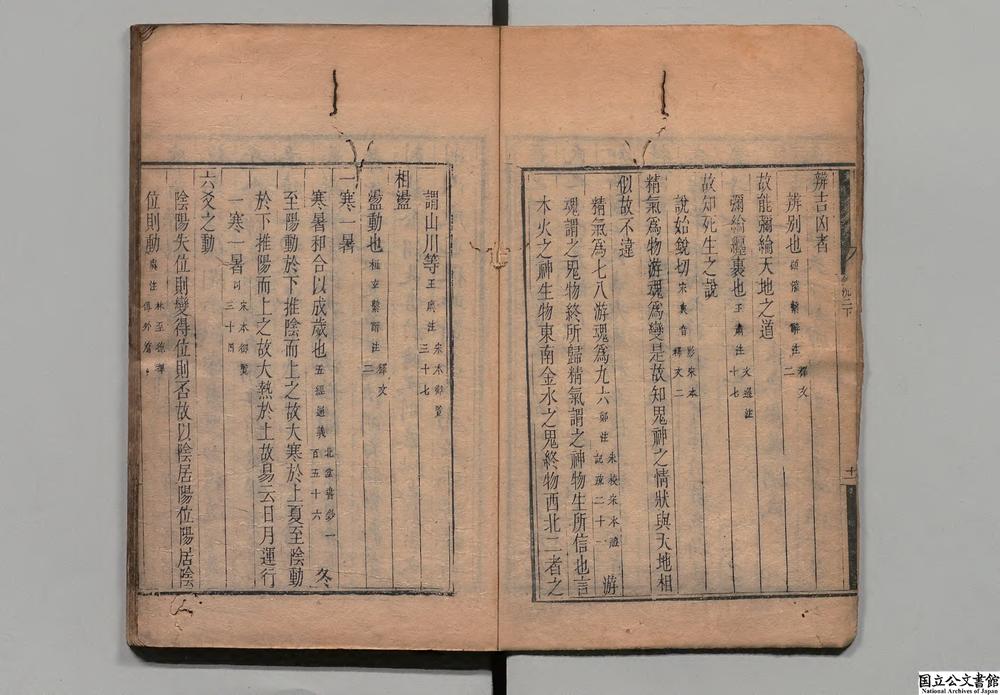 辨吉凶者
辨別也 釋文二
故能彌綸天地之道
彌綸纏裹也 王肅注 文選注十七
故知死生之說
說始銳切 宋衷音 影宋本釋文二
精氣爲物游魂爲變是故知鬼神之情狀與天地相
似故不違
精氣爲七八游魂爲九六 鄭注 朱校宋本禮記疏二十一 游
魂謂之鬼物終所歸精氣謂之神物生所信也言
木火之神生物東南金水之鬼終物西北二者之
謂山川等 王廙注 宋本御覽三十七
相盪
盪動也 桓玄繫辭注 釋文二
一寒一暑
寒暑和合以成歲也 五經通義 北堂書鈔一百五十六 冬
至陽動於下推陰而上之故大寒於上夏至陰動
於下推陽而上之故大熱於上故易云日月運行
一寒一暑 宋本御覽三十四
六爻之動
陰陽失位則變得位則否故以陰居陽位陽居陰
位則動 虞注 林至德釋傳外篇
国立公文書館
National Archives of Japan